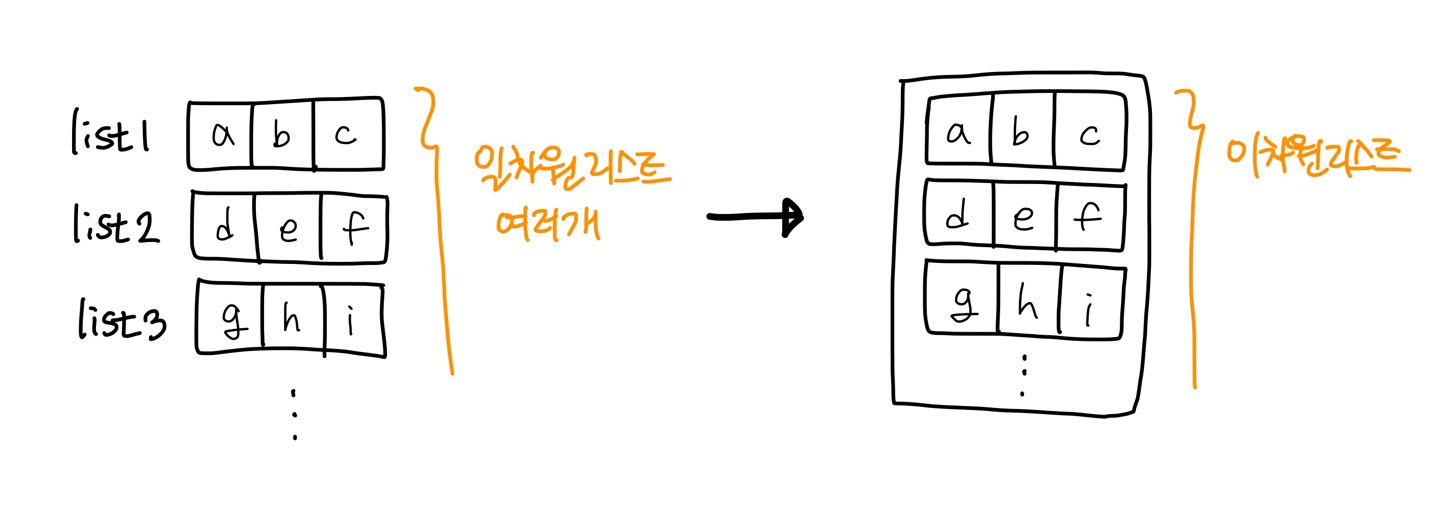 list1 a b c
list2 d e f
list3 g h i
일차원리스트
여러개
a b c
d e f
g h i
이차원리스트